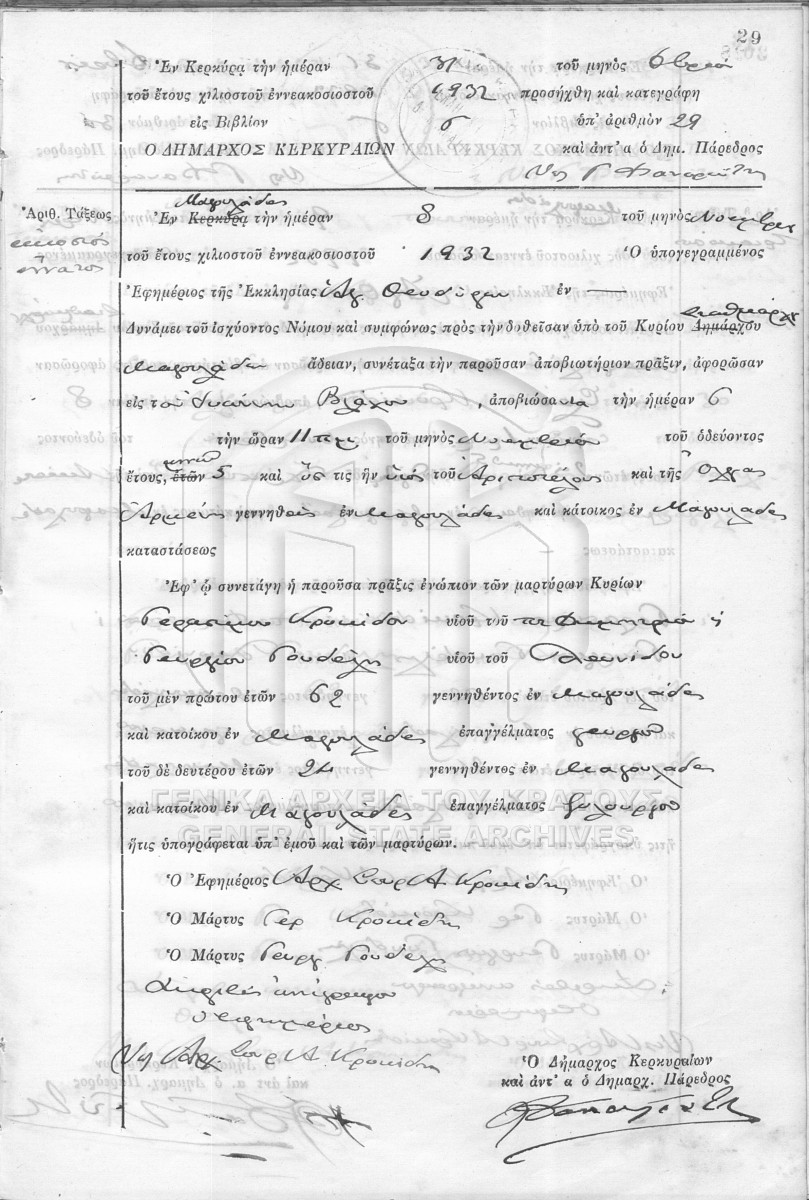 29
Ἐν Κερκύρᾳ τὴν ἡμέραν 31 τοῦ μηνὸς
τοῦ ἔτους χιλιοστοῦ ἐννεακοσιοστοῦ 1932 προσήχθη καὶ κατεγράφη
εἰς Βιβλίον 6 ὑπ' ἀριθμὸν 29
Ο ΔΗΜΑΡΧΟΣ ΚΕΡΚΥΡΑΙΩΝ καὶ ἀντ' α ὁ Δημ. Πάρεδρος
Μαγουλάδες
Ἀριθ. Τάξεως
εἰκοστὸς
ἔννατος
Ἐν Κερκύρᾳ τὴν ἡμέραν 8 τοῦ μηνὸς Νοεμβρ
τοῦ ἔτους χιλιοστοῦ ἐννεακοσιοστοῦ 1932 Ὁ ὑπογεγραμμένος
Ἐφημέριος τῆς Ἐκκλησίας Ἁγ. Θεοδώρου ἐν —
Δυνάμει τοῦ ἰσχύοντος Νόμου καὶ συμφώνως πρὸς τὴν δοθεῖσαν ὑπὸ τοῦ Κυρίου Δημάρχου
Μαγουλάδων ἄδειαν, συνέταξα τὴν παροῦσαν ἀποβιωτήριον πρᾶξιν, ἀφορῶσαν
εἰς τὸν Ἰωάννην Βλάχον, ἀποβιώσαντα τὴν ἡμέραν 6
τὴν ὥραν 11 π.μ. τοῦ μηνὸς Νοεμβρίου τοῦ ὁδεύοντος
ἔτους, ἐτῶν μηνῶν 5 καὶ ὅς τις ἦν υἱὸς τοῦ Ἀριστοτέλους καὶ τῆς Ὄλγας
γεννηθεὶς ἐν Μαγουλάδες καὶ κάτοικος ἐν Μαγουλάδες
καταστάσεως
Ἐφ' ᾧ συνετάγη ἡ παροῦσα πρᾶξις ἐνώπιον τῶν μαρτύρων Κυρίων
Γερασίμου Κροκίδου υἱοῦ τοῦ Δημητρίου
Γεωργίου Γουδέλη υἱοῦ τοῦ Λεωνίδου
τοῦ μὲν πρώτου ἐτῶν 62 γεννηθέντος ἐν Μαγουλάδες
καὶ κατοίκου ἐν Μαγουλάδες ἐπαγγέλματος γεωργοῦ
τοῦ δὲ δευτέρου ἐτῶν 24 γεννηθέντος ἐν Μαγουλάδες
καὶ κατοίκου ἐν Μαγουλάδες ἐπαγγέλματος ξυλουργοῦ
ΓΕΝΙΚΑ ΑΡΧΕΙΑ ΤΟΥ ΚΡΑΤΟΥΣ
GENERAL STATE ARCHIVES
ἥτις ὑπογράφεται ὑπ' ἐμοῦ καὶ τῶν μαρτύρων.
Ὁ Ἐφημέριος Ἀρχ. Σπυρ Α. Κροκίδης
Ὁ Μάρτυς Γερ Κροκίδης
Ὁ Μάρτυς Γεωργ. Γουδέλης
Ἀκριβὲς ἀντίγραφον
ὁ ἐφημέριος
Ἀρχ. Σπυρ Α. Κροκίδης
Ὁ Δήμαρχος Κερκυραίων
καὶ ἀντ' α ὁ Δημαρχ. Πάρεδρος